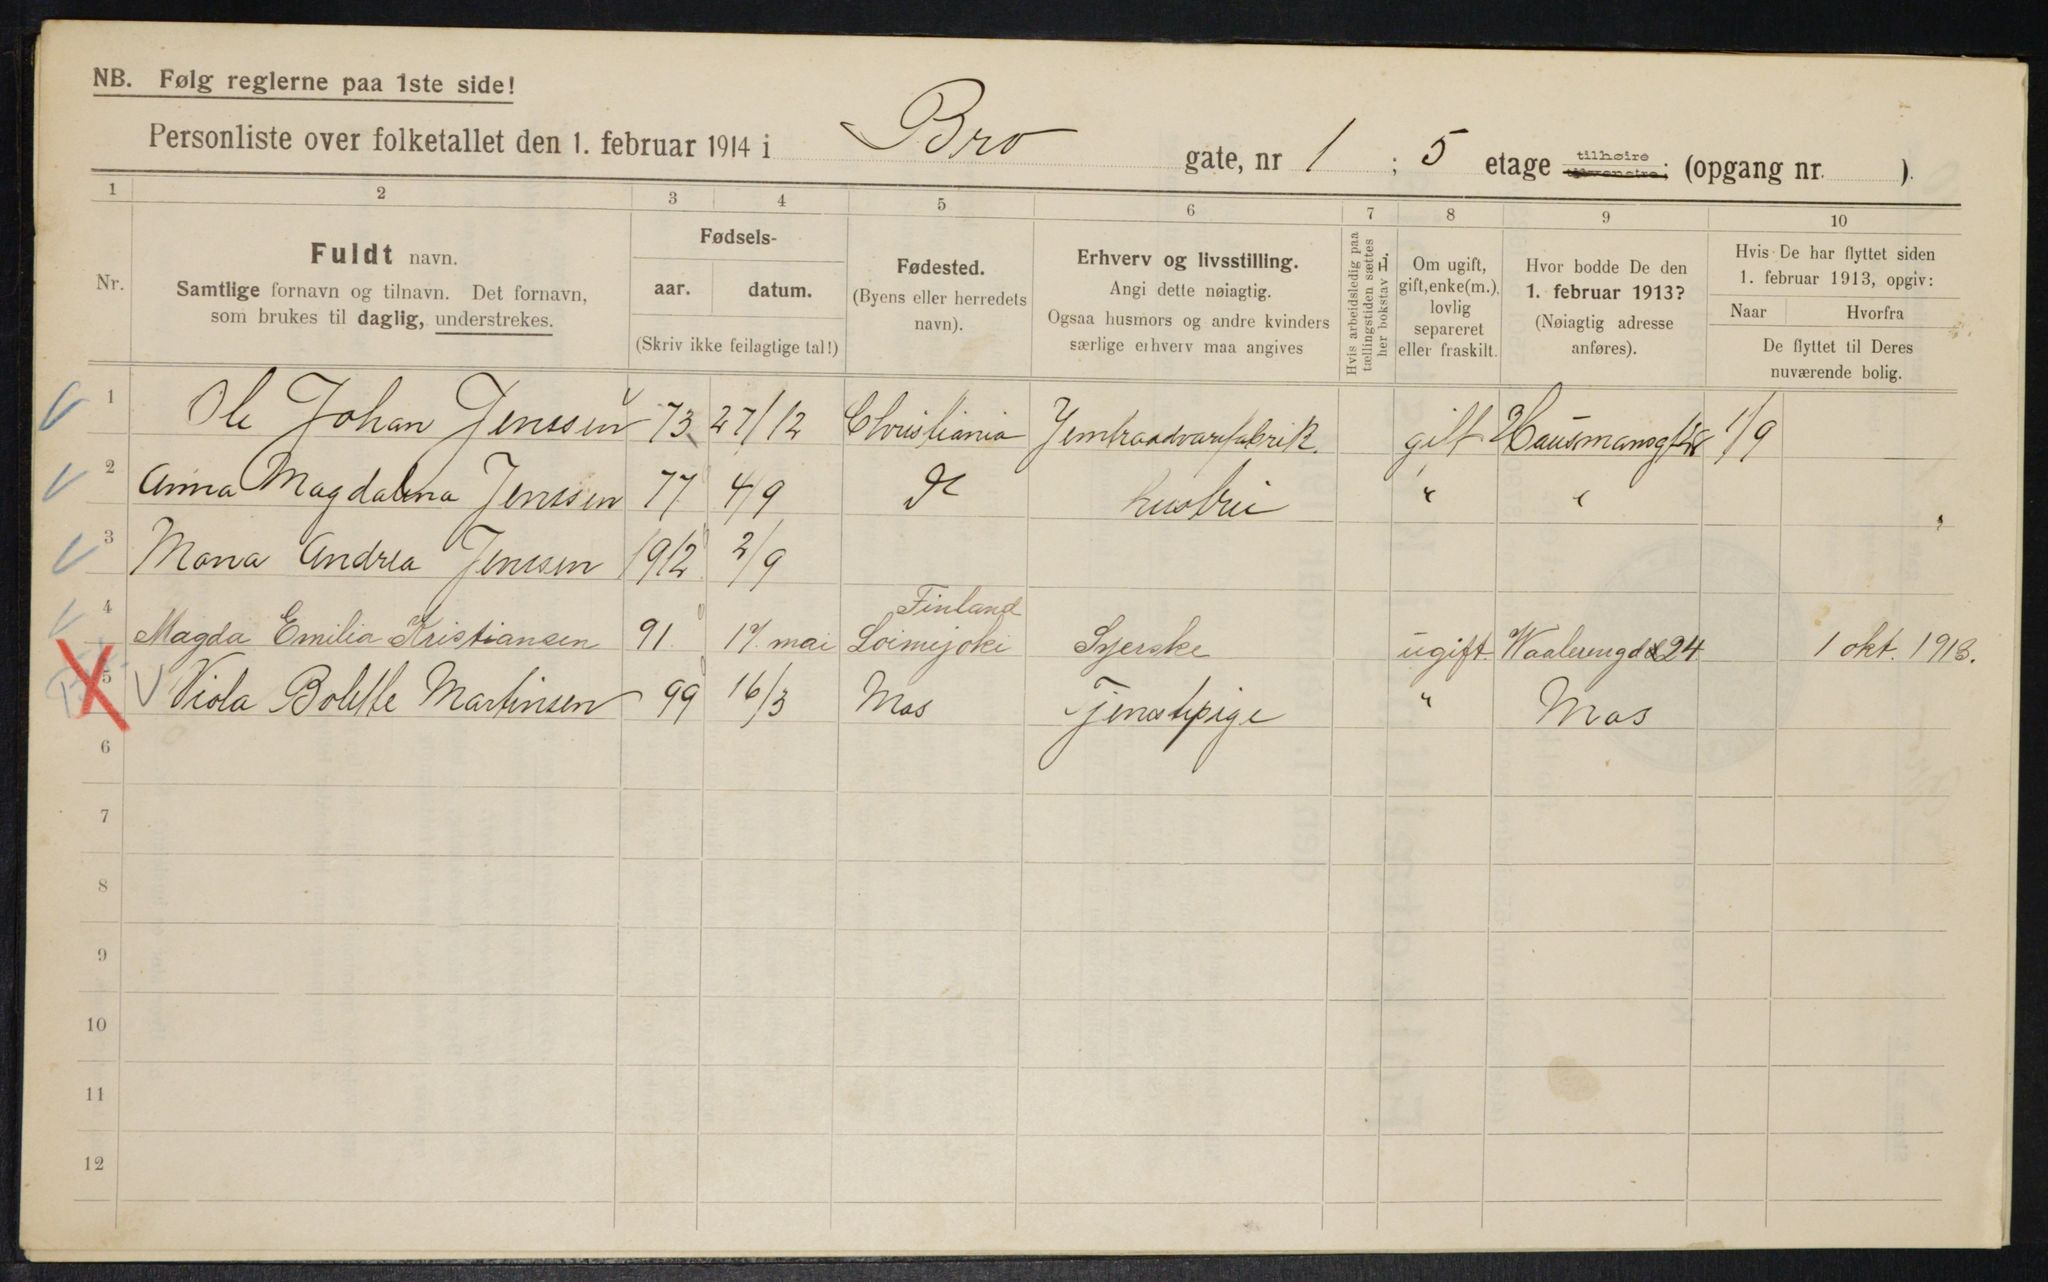 NB. Følg reglerne paa 1ste side!
Personliste over folketallet den 1. februar 1914 i Bro gate, nr 1 ; 5 etage tilhøire (opgang nr. ).
1 2 3 4 5 6 7 8 9 10
Nr.
Fuldt navn.
Samtlige fornavn og tilnavn. Det fornavn,
som brukes til daglig, understrekes.
Fødsels-
aar. datum.
(Skriv ikke feilagtige tal!)
Fødested.
(Byens eller herredets
navn).
Erhverv og livsstilling.
Angi dette nøiagtig.
Ogsaa husmors og andre kvinders
særlige erhverv maa angives
Hvis arbeidsledig paa
tællingstiden sættes
her bokstav H.
Om ugift,
gift, enke(m.),
lovlig
separeret
eller fraskilt.
Hvor bodde De den
1. februar 1913?
(Nøiagtig adresse
anføres).
Hvis De har flyttet siden
1. februar 1913, opgiv:
Naar Hvorfra
De flyttet til Deres
nuværende bolig.
1 Ole Johan Jenssen 73 27/12 Christiania gift Hausmansgt 1/9
2 Anna Magdalena Jenssen 77 4/9 hustru " "
3 Mona Andrea Jenssen 1912 2/9
Finland
4 Magda Emilia Kristiansen 91. 17. mai Loimijoki Syerske ugift. Waalerengd 24 1 okt. 1913.
5 Viola Bolette Martinsen 99 16/3 Mos Tjenestpige " Mos
6
7
8
9
10
11
12